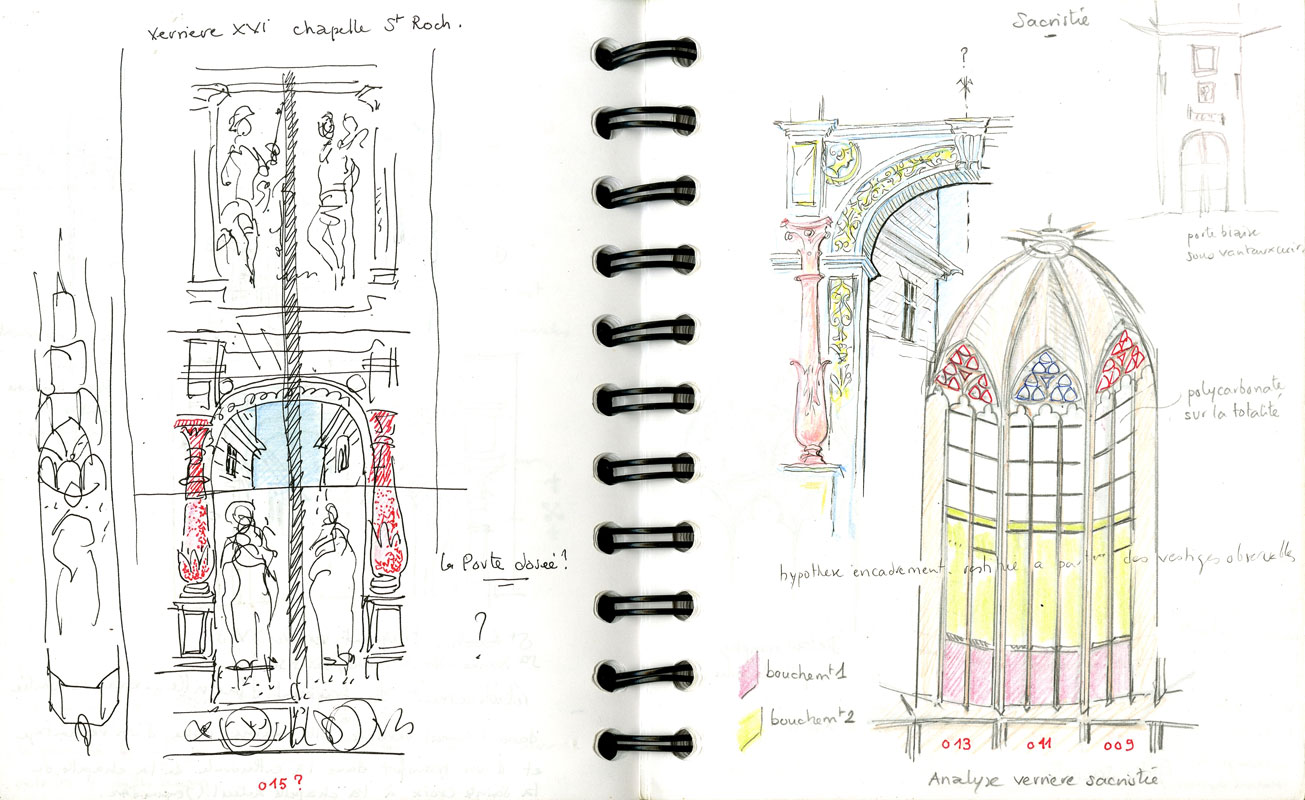 verriere XVI chapelle St Roch.
la Porte dorée ?
?
015 ?
Sacristie
?
porte biaise
sous vantaux
polycarbonate
sur la totalité
hypothese encadrement. restitué a partir des vestiges observables
bouchemt 1
bouchemt 2
013 011 009
Analyse verriere sacristie